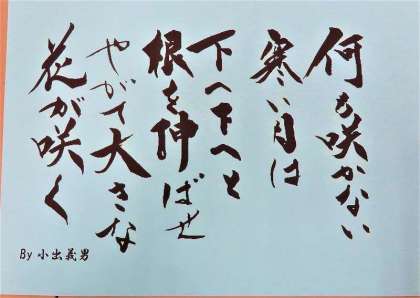 何も咲かない
寒い月は
下へ下へと
根を伸ばせ
やがて大きな
花が咲く
By 小出義男